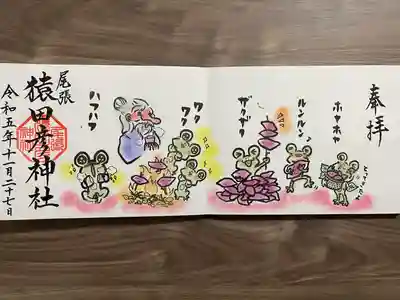 奉拝
ホヤホヤ
ルンルン♪
ザクザク
ワク
ワク
ハフハフ
尾張
猿田彦神社
令和五年十一月二十七日